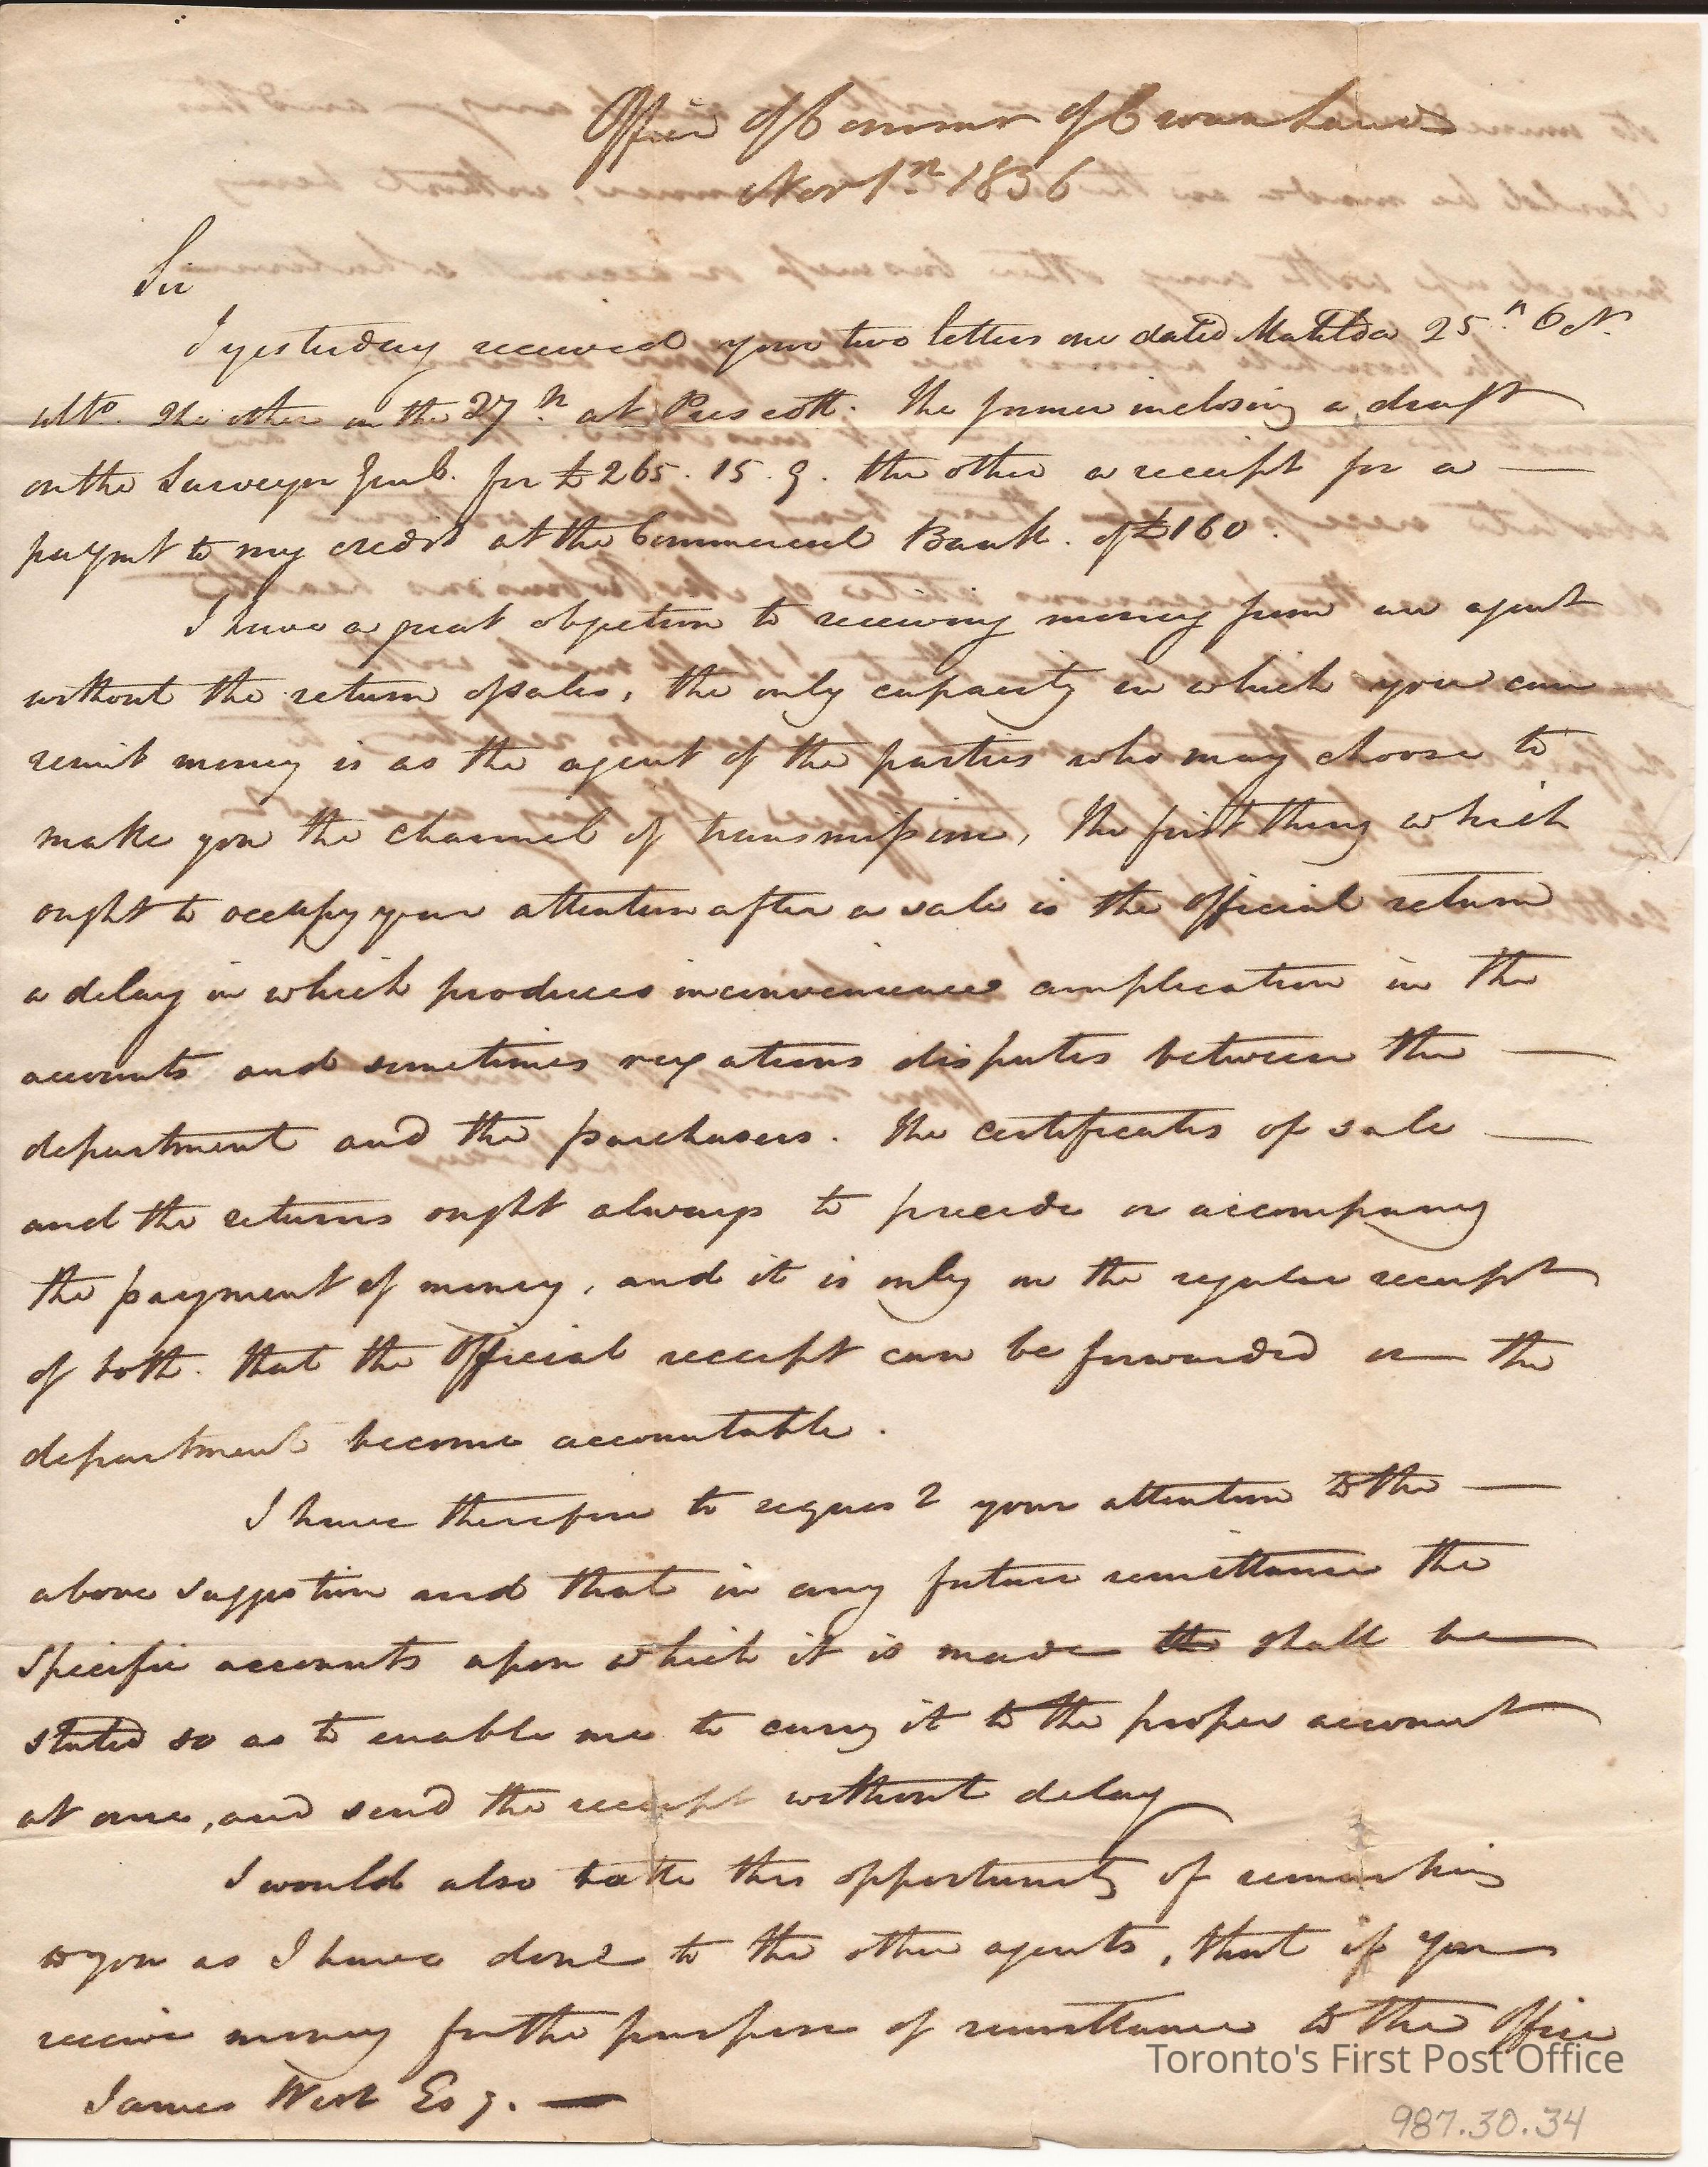 Office of Commr of Crown Lands
Novr 1st 1836
Sir
I yesterday received your two letters one dated Matilda 25th Octr
ulto. The other on the 27th at Prescott. The former inclosing a draft
on the Surveyor Genl. for £265. 15. 9. the other a receipt for a —
paymt to my credit at the Commercial Bank. of £160.
I have a great objection to receiving money from an agent
without the return of sales, the only capacity in which you can
remit money is as the agent of the parties who may choose to
make you the channel of transmission, the first thing which
ought to occupy your attention after a sale is the official return
a delay in which produces inconvenience complication in the
accounts and sometimes vexatious disputes between the —
department and the purchasers. The certificates of sale —
and the returns ought always to precede or accompany
the payment of money, and it is only on the regular receipt
of both. that the Official receipt can be forwarded or the
department become accountable.
I have therefore to request your attention to the —
above suggestion and that in any future remittance the
specific accounts upon which it is made the shall be
stated so as to enable me to carry it to the proper account
at once, and send the receipt without delay
I would also take this opportunity of remarking
to you as I have done to the other agents, that if you
receive money for the purpose of remittance to the Office
James West Esq. —
Toronto's First Post Office
987.30.34